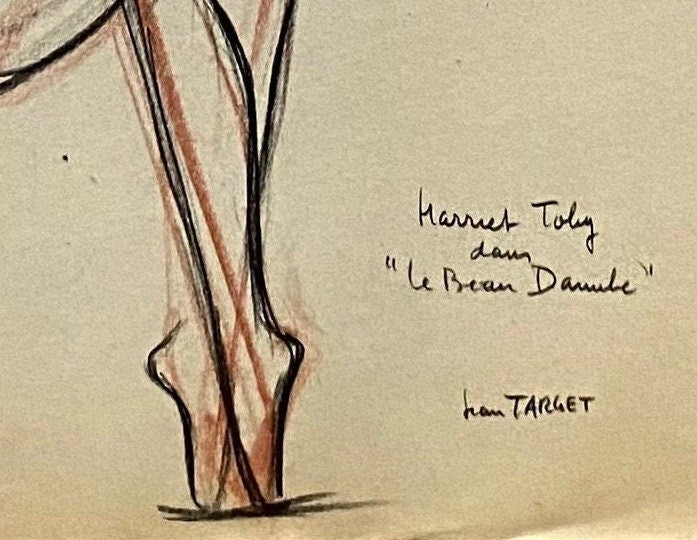 Harriet Toby
dans
"Le Beau Danube"
Jean TARGET